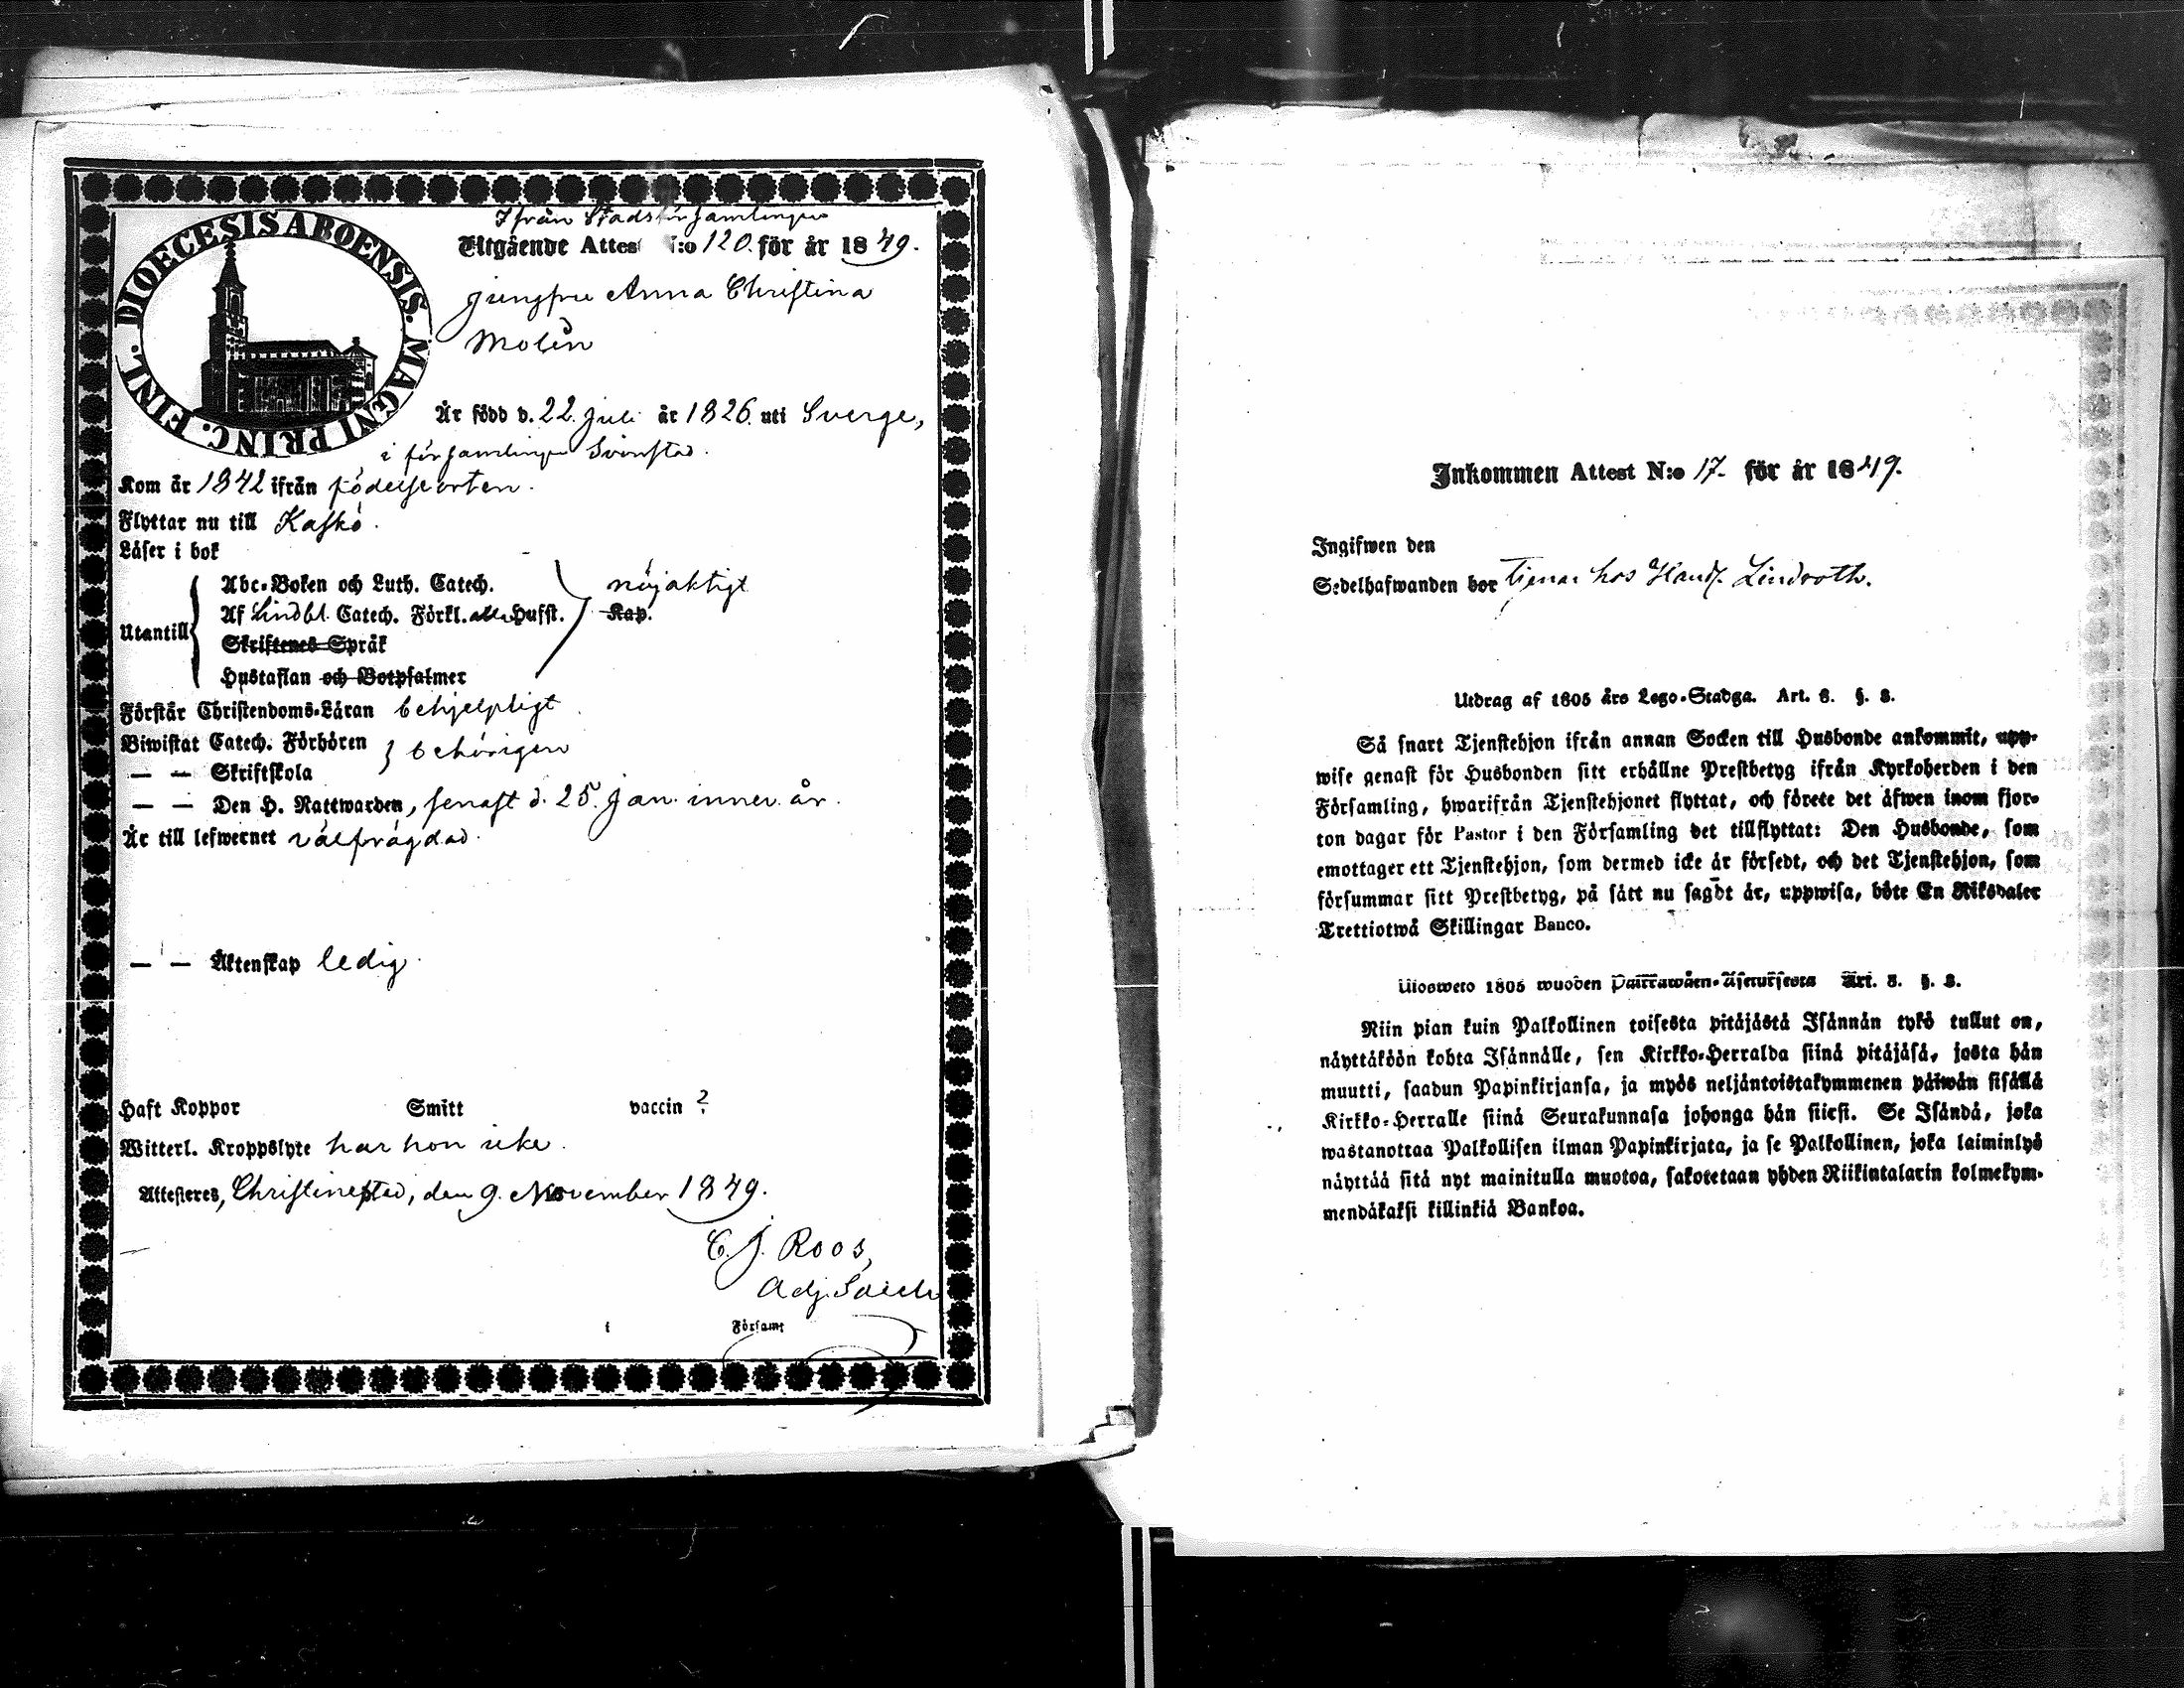 DIOECESIS ABOENSIS. MAGNI PRINC. FINL.
Ifrån Stadsförsamlingen
Utgående Attest N:o 120. för år 1849.
Jungfru Anna Christina
Molin
Är född d. 22. Juli år 1826. uti Sverge,
i församlingen Svinstad.
Kom år 1842 ifrån födelseorten.
Flyttar nu till Kaskö.
Läser i bok
Utantill
Abc-Boken och Luth. Catech.
nöjaktigt
Af Lindbl. Catech. Förkl. alla Hufst. Kap.
Skriftenes Språk
Hustaflan och Botpsalmer
Förstår Christendoms-Läran behjelpligt
Biwistat Catech. Förhören } behörigen
— — Skriftskola
— — Den H. Nattwarden, senast d. 25. Jan. innev. år.
Är till lefwernet välfrägdad.
— — Äktenskap ledig.
Haft Koppor Smitt vaccin ?
Witterl. Kroppslyte har hon icke.
Attesteres, Christinestad, den 9. November 1849.
C. J. Roos,
Adj.
i Församl
Inkommen Attest N:o 17. för år 1849.
Ingifwen den
Sedelhafwanden bor tjenar hos Handl. Lindroth.
Utdrag af 1805 års Lego-Stadga. Art. 3. §. 8.
Så snart Tjenstehjon ifrån annan Socken till Husbonde ankommit, upp-
wise genast för Husbonden sitt erhållne Prestbetyg ifrån Kyrkoherden i den
Församling, hwarifrån Tjenstehjonet flyttat, och förete det äfwen inom fjor-
ton dagar för Pastor i den Församling det tillflyttat: Den Husbonde, som
emottager ett Tjenstehjon, som dermed icke är försedt, och det Tjenstehjon, som
försummar sitt Prestbetyg, på sätt nu sagdt är, uppwisa, böte En Riksdaler
Trettiotwå Skillingar Banco.
Ulosweto 1805 wuoden Palkkawäen-Asetuksesta Art. 3. §. 8.
Niin pian kuin Palkollinen toisesta pitäjästä Isännän tykö tullut on,
näyttäköön kohta Isännälle, sen Kirkko-Herralda siinä pitäjäsä, josta hän
muutti, saadun Papinkirjansa, ja myös neljäntoistakymmenen päiwän sisällä
Kirkko-Herralle siinä Seurakunnasa johonga hän siirsi. Se Isändä, joka
wastanottaa Palkollisen ilman Papinkirjata, ja se Palkollinen, joka laiminlyö
näyttää sitä nyt mainitulla muotoa, sakotetaan yhden Riikintalarin kolmekym-
mendäkaksi killinkiä Bankoa.